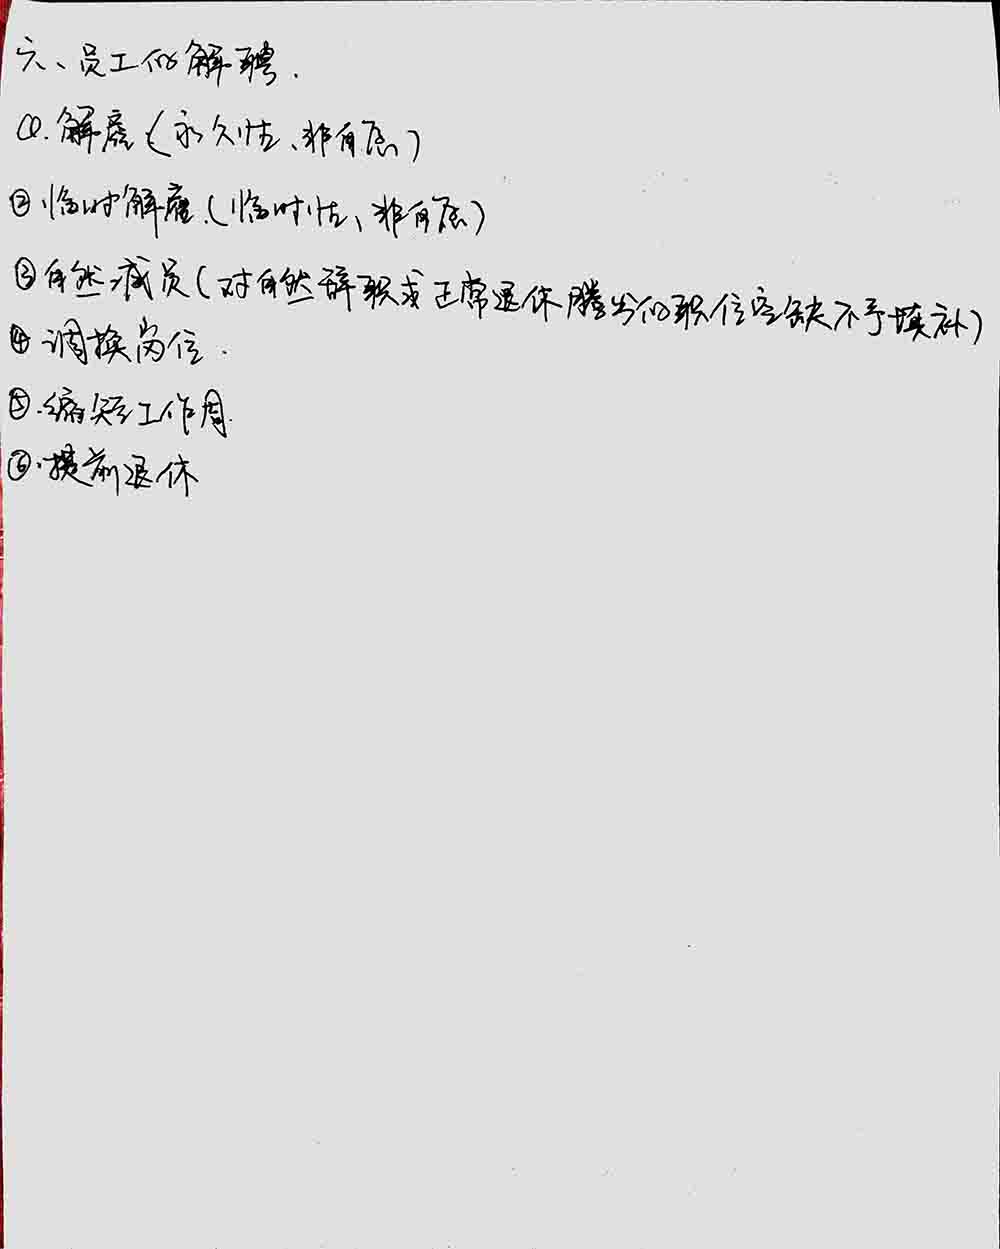 六、员工的解聘.
①.解雇(永久性、非自愿)
②临时解雇.(临时性、非自愿)
③自然减员(对自然辞职或正常退休腾出的职位空缺不予填补)
④调换岗位.
⑤.缩短工作周.
⑥.提前退休